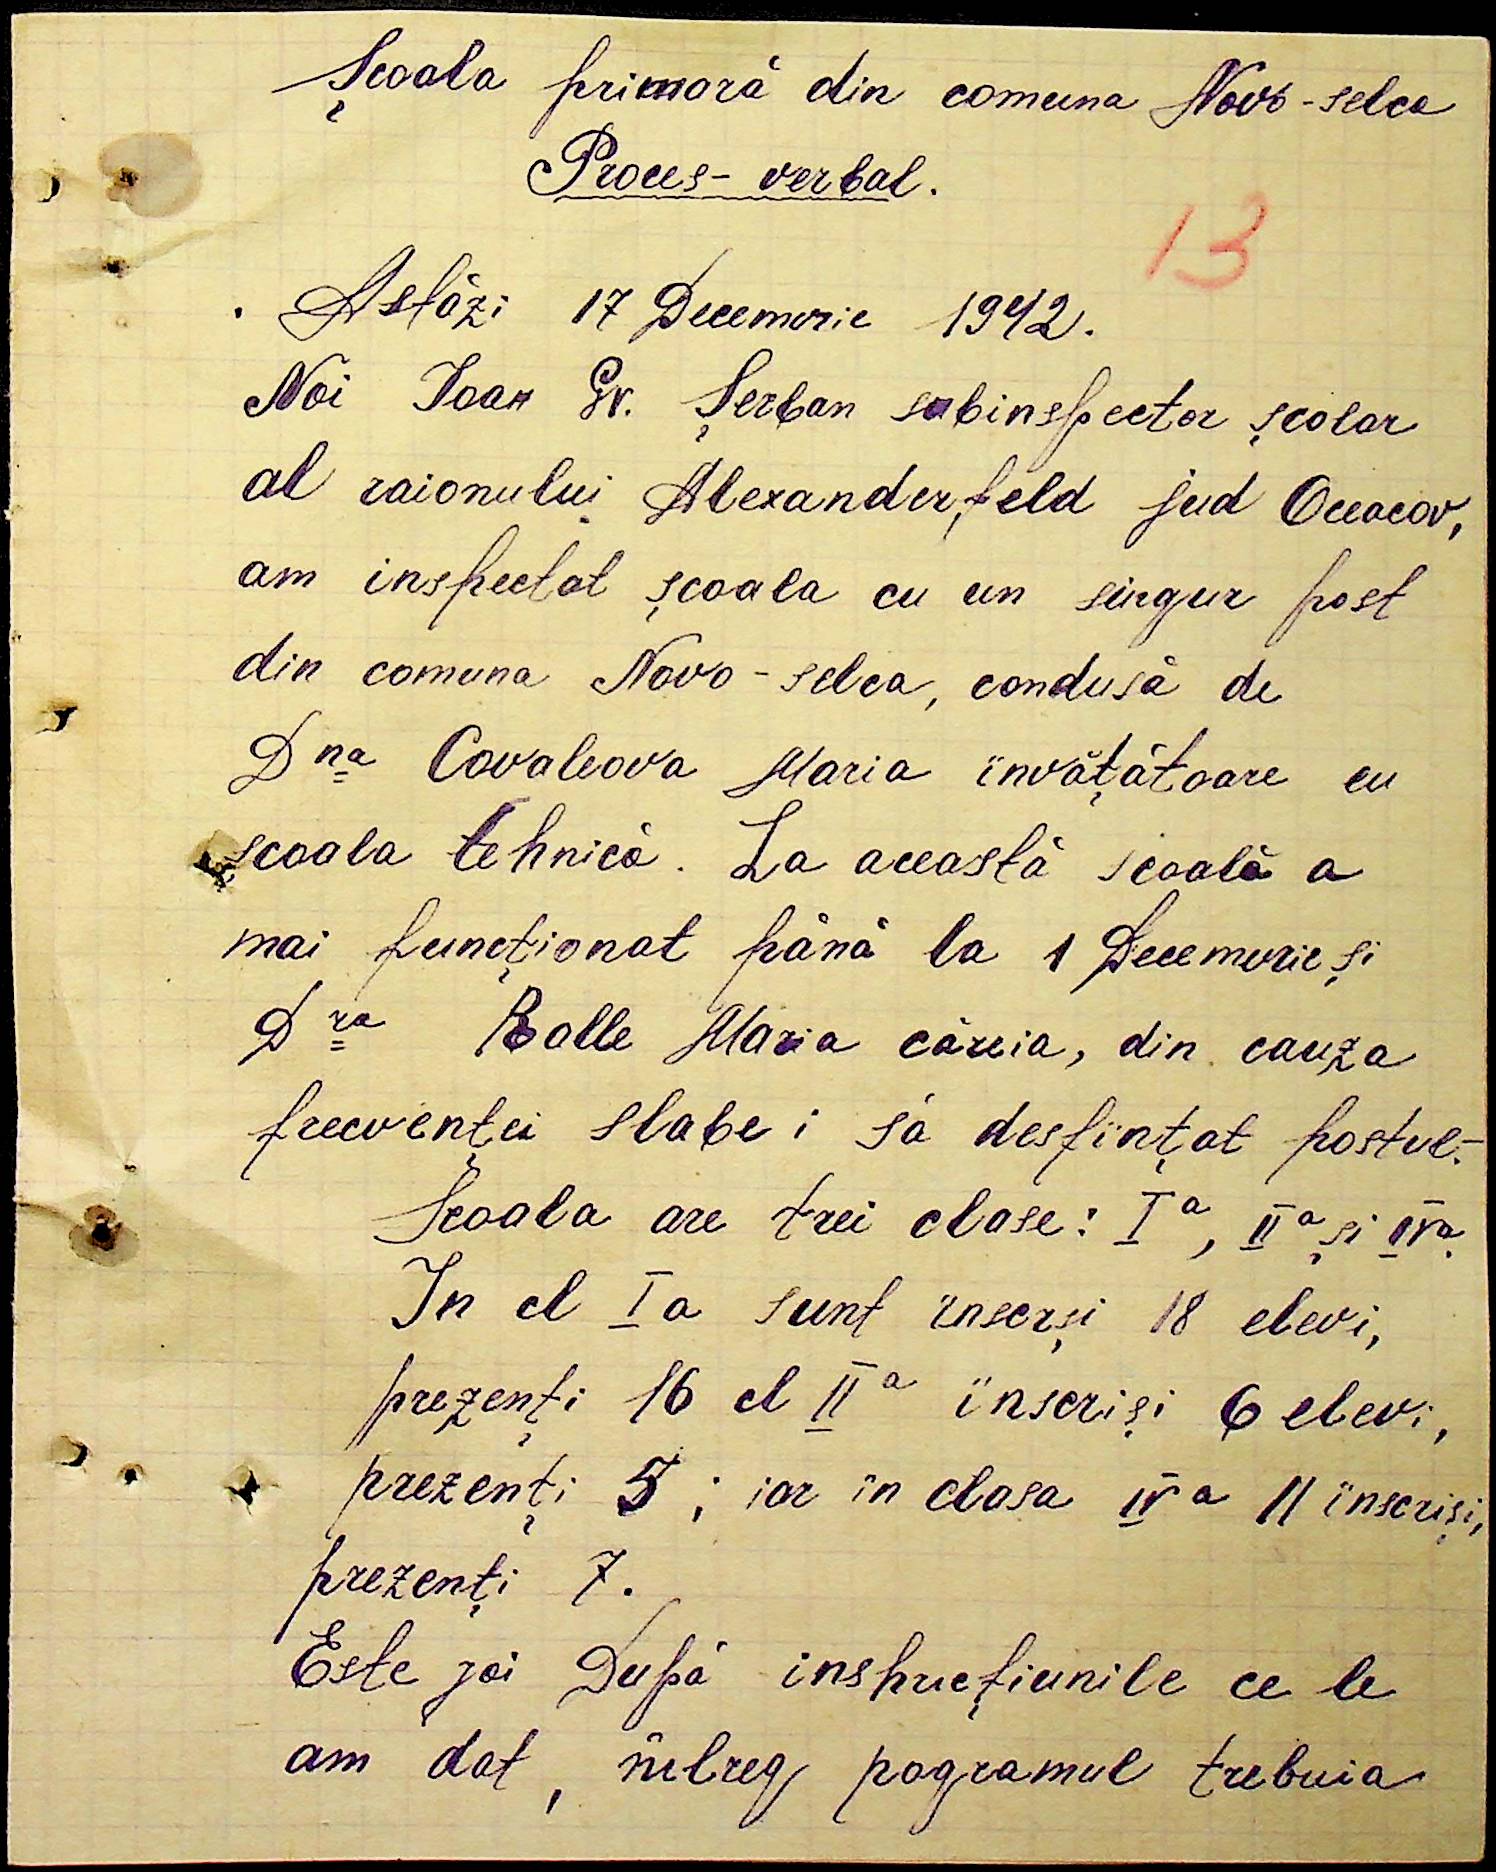 Școala primară din comuna Novo-selca
Proces-verbal.
13
Astăzi 17 Decemvrie 1942.
Noi Ioan Gr. Șerban subinspector școlar
al raionului Alexanderfeld jud Oceacov,
am inspectat școala cu un singur post
din comuna Novo-selca, condusă de
Dna Covaleova Maria învățătoare cu
școala tehnică. La această scoală a
mai funcționat până la 1 Decemvrie și
Dra Rolle Maria căreia, din cauza
frecvenței slabe i să desfințat postul.-
Scoala are trei clase: I a, II a și IV a.
In cl I a sunt înscrși 18 elevi,
prezenți 16 cl II a înscriși 6 elevi,
prezenți 5; iar în clasa IV a 11 înscriși,
prezenți 7.
Este joi După instrucțiunile ce le
am dat, întreg pogramul trebuia